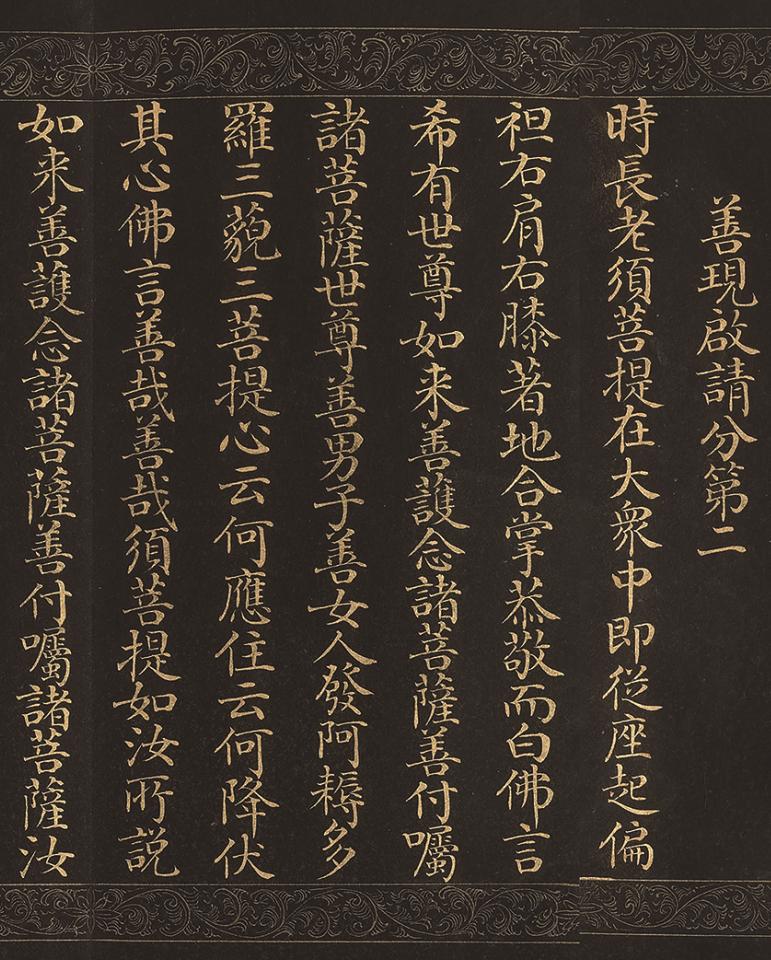 善現啟請分第二
時長老須菩提在大衆中即從座起偏
袒右肩右膝著地合掌恭敬而白佛言
希有世尊如来善護念諸菩薩善付囑
諸菩薩世尊善男子善女人發阿耨多
羅三藐三菩提心云何應住云何降伏
其心佛言善哉善哉須菩提如汝所説
如来善護念諸菩薩善付囑諸菩薩汝